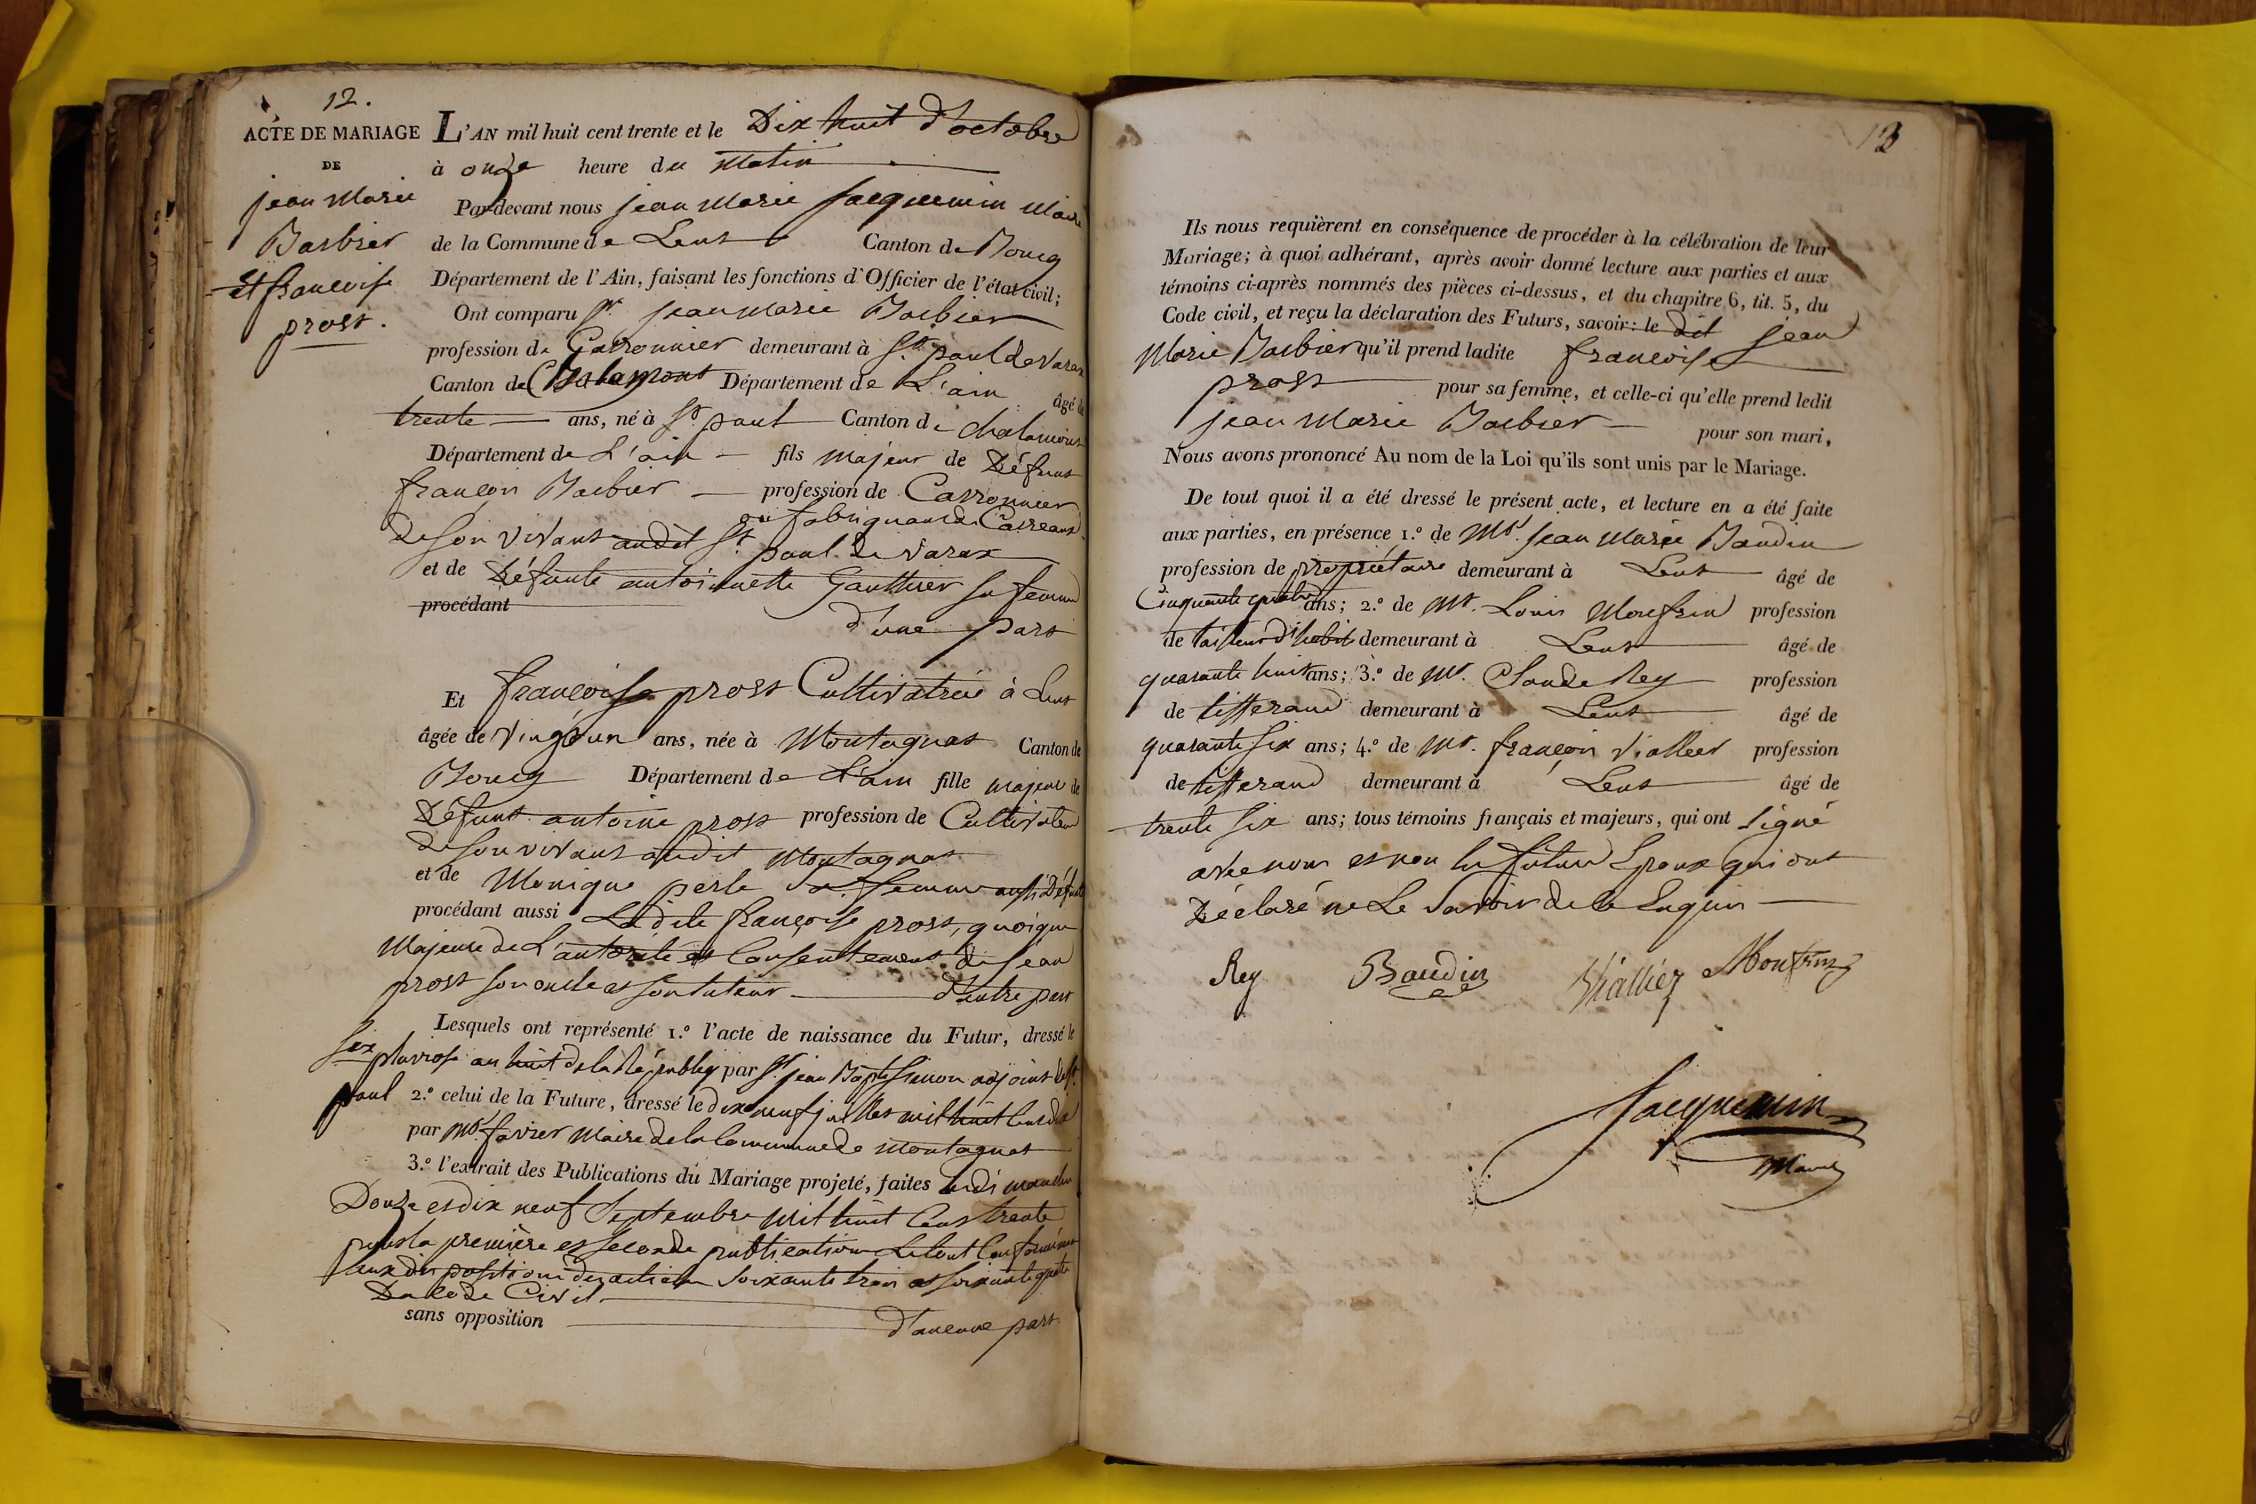 12.
ACTE DE MARIAGE
DE
jean Marie
Barbier
et françoise
prost.
L'AN mil huit cent trente et le Dix huit d'octobre
à onze heure du Matin
Pardevant nous jean Marie Jacquemin Maire
de la Commune de Lent Canton de Bourg
Département de l'Ain, faisant les fonctions d'Officier de l'état civil;
Ont comparu Sr. jean marie Barbier
profession de Carronnier demeurant à St. paul de Varax
Canton de Chalamont Département de L'ain âgé de
trente ans, né à St. paul Canton de chalamont
Département de L'ain fils majeur de Défunt
françois Barbier profession de Carronnier
ou fabriquant de Carreaux
de son vivant audit St. paul de Varax
et de Défunte antoinette Gauthier sa femme
procédant d'une part
Et françoise prost Cultivatrice à Lent
âgée de vingt un ans, née à Montagnat Canton de
Bourg Département de L'ain fille majeure de
Défunt antoine prost profession de Cultivateur
de son vivant audit Montagnat
et de Monique perle sa femme aussi Défunte
procédant aussi Ladite françoise prost, quoique
Majeure de L'autorité et Consentement de jean
prost son oncle et son tuteur d'autre part
Lesquels ont représenté 1.° l'acte de naissance du Futur, dressé le
six pluviose an huit de la Républiq par Sr. jean Baptiste adjoint de St.
paul 2.° celui de la Future, dressé le dix neuf juillet mil huit cent dix
par Mr. favier Maire de la Commune de Montagnat
3.° l'extrait des Publications du Mariage projeté, faites
Douze et dix neuf Septembre Mil huit Cent trente
pour la première et seconde publication Le tout Conformément
aux dispositions des articles soixante trois et soixante quatre
Du code Civil
sans opposition d'aucune part
13
Ils nous requièrent en conséquence de procéder à la célébration de leur
Mariage; à quoi adhérant, après avoir donné lecture aux parties et aux
témoins ci-après nommés des pièces ci-dessus, et du chapitre 6, tit. 5, du
Code civil, et reçu la déclaration des Futurs, savoir: le dit jean
Marie Barbier qu'il prend ladite françoise
prost pour sa femme, et celle-ci qu'elle prend ledit
jean Marie Barbier pour son mari,
Nous avons prononcé Au nom de la Loi qu'ils sont unis par le Mariage.
De tout quoi il a été dressé le présent acte, et lecture en a été faite
aux parties, en présence 1.° de Mr. jean Marie Baudin
profession de propriétaire demeurant à Lent âgé de
Cinquante quatre ans; 2.° de Mr. Louis Monfrin profession
de tailleur d'habit demeurant à Lent âgé de
quarante huit ans; 3.° de Mr. Claude Rey profession
de tisserand demeurant à Lent âgé de
quarante six ans; 4.° de Mr. françois Viallier profession
de tisserand demeurant à Lent âgé de
trente six ans; tous témoins français et majeurs, qui ont signé
avec nous et non les futurs Epoux qui ont
Déclaré ne Le Savoir de ce Enquis
Rey Baudin Viallier Monfrin
Jacquemin
Maire